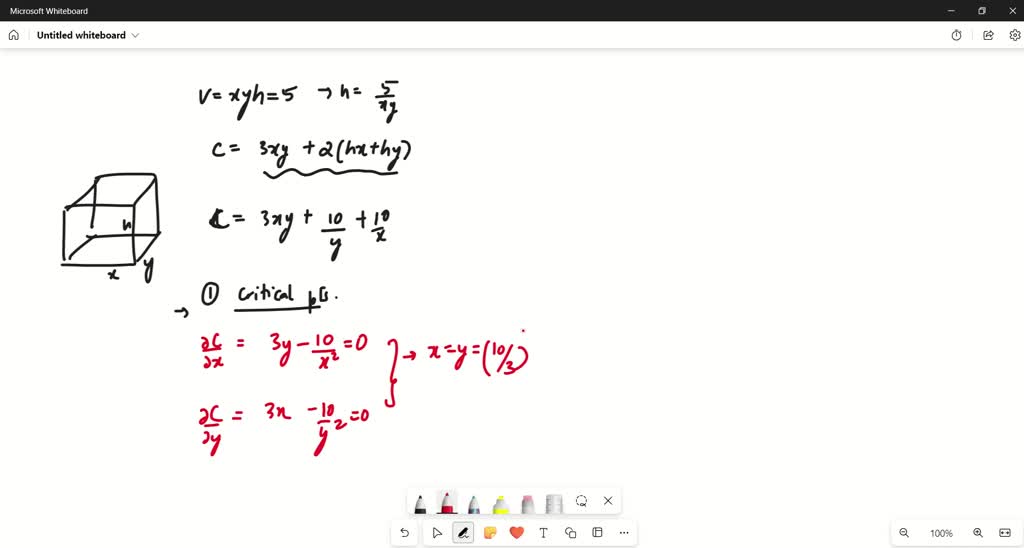 Microsoft Whiteboard
Untitled whiteboard
V = xyh = 5 → h = 5/xy
C = 3xy + 2(hx+hy)
C = 3xy + 10/y + 10/x
h
x
y
→ ① critical pts.
∂C/∂x = 3y - 10/x² = 0
} → x = y = (10/3)
∂C/∂y = 3x - 10/y² = 0
T
100%